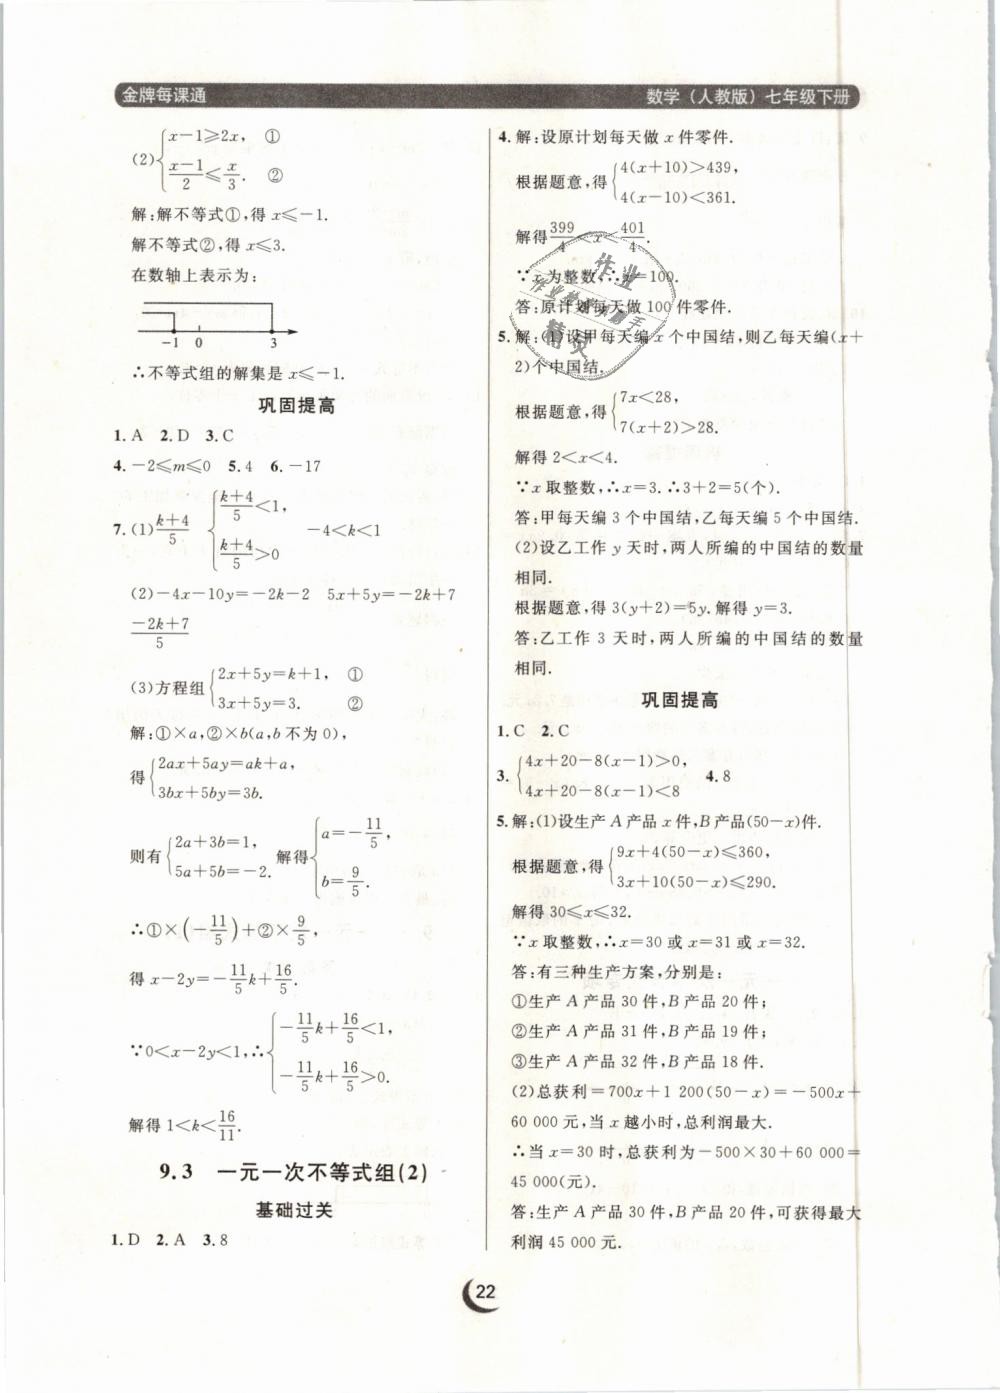 金牌每课通
数学（人教版）七年级下册
(2){x-1≥2x, ①
(x-1)/2≤x/3. ②
解:解不等式①,得 x≤-1.
解不等式②,得 x≤3.
在数轴上表示为:
-1 0 3
∴不等式组的解集是 x≤-1.
巩固提高
1. A 2. D 3. C
4. -2≤m≤0 5. 4 6. -17
7. (1) (k+4)/5 {(k+4)/5<1, (k+4)/5>0 -4<k<1
(2)-4x-10y=-2k-2 5x+5y=-2k+7
(-2k+7)/5
(3)方程组{2x+5y=k+1, ①
3x+5y=3. ②
解:①×a,②×b(a,b不为0),
得{2ax+5ay=ak+a,
3bx+5by=3b.
则有{2a+3b=1, 5a+5b=-2. 解得{a=-11/5, b=9/5.
∴①×(-11/5)+②×9/5,
得 x-2y=-11/5k+16/5.
∵0<x-2y<1,∴{-11/5k+16/5<1,
-11/5k+16/5>0.
解得 1<k<16/11.
9.3 一元一次不等式组(2)
基础过关
1. D 2. A 3. 8
4. 解:设原计划每天做 x 件零件.
根据题意,得{4(x+10)>439,
4(x-10)<361.
解得399/4<x<401/4.
∵x 为整数,∴x=100.
答:原计划每天做 100 件零件.
5. 解:(1)设甲每天编 x 个中国结,则乙每天编(x+
2)个中国结.
根据题意,得{7x<28,
7(x+2)>28.
解得 2<x<4.
∵x 取整数,∴x=3.∴3+2=5(个).
答:甲每天编 3 个中国结,乙每天编 5 个中国结.
(2)设乙工作 y 天时,两人所编的中国结的数量
相同.
根据题意,得 3(y+2)=5y.解得 y=3.
答:乙工作 3 天时,两人所编的中国结的数量
相同.
巩固提高
1. C 2. C
3. {4x+20-8(x-1)>0,
4x+20-8(x-1)<8 4. 8
5. 解:(1)设生产 A 产品 x 件,B 产品(50-x)件.
根据题意,得{9x+4(50-x)≤360,
3x+10(50-x)≤290.
解得 30≤x≤32.
∵x 取整数,∴x=30 或 x=31 或 x=32.
答:有三种生产方案,分别是:
①生产 A 产品 30 件,B 产品 20 件;
②生产 A 产品 31 件,B 产品 19 件;
③生产 A 产品 32 件,B 产品 18 件.
(2)总获利=700x+1 200(50-x)=-500x+
60 000 元,当 x 越小时,总利润最大.
∴当 x=30 时,总获利为-500×30+60 000=
45 000(元).
答:生产 A 产品 30 件,B 产品 20 件,可获得最大
利润 45 000 元.
22